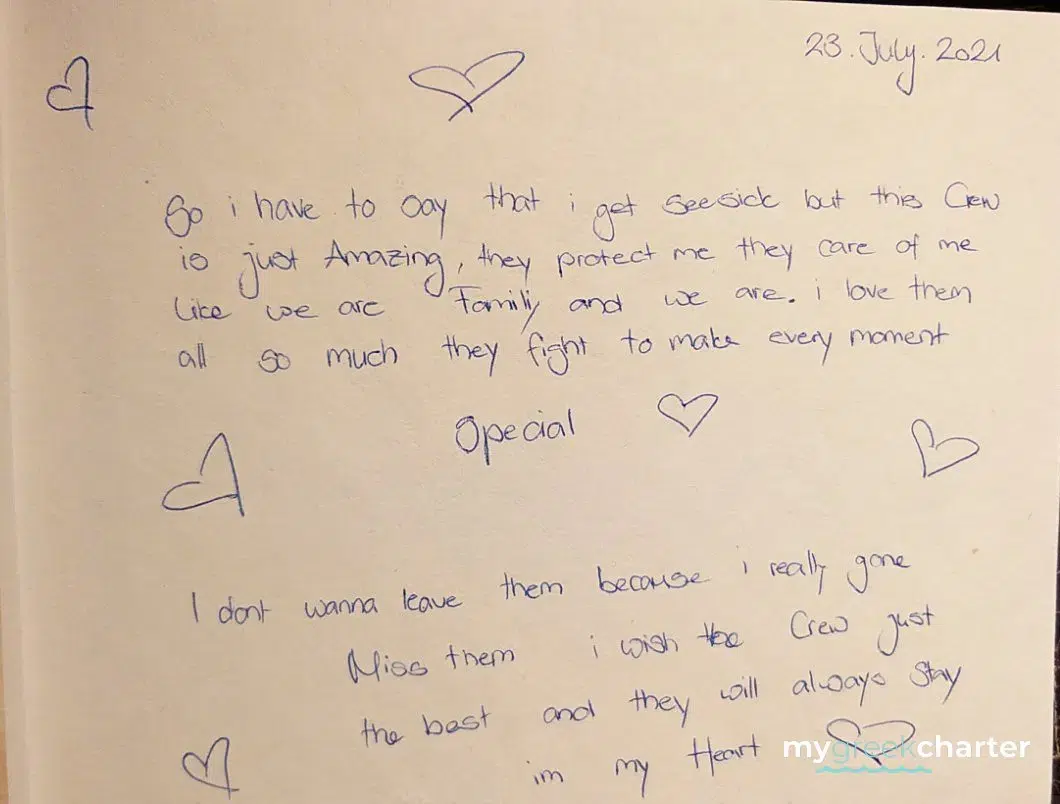 23. July. 2021
So i have to say that i get seesick but this Crew
is just Amazing, they protect me they care of me
like we are Family and we are. i love them
all so much they fight to make every moment
Special
I dont wanna leave them because i really gone
Miss them i wish the Crew just
the best and they will always stay
im my Heart
mygreekcharter